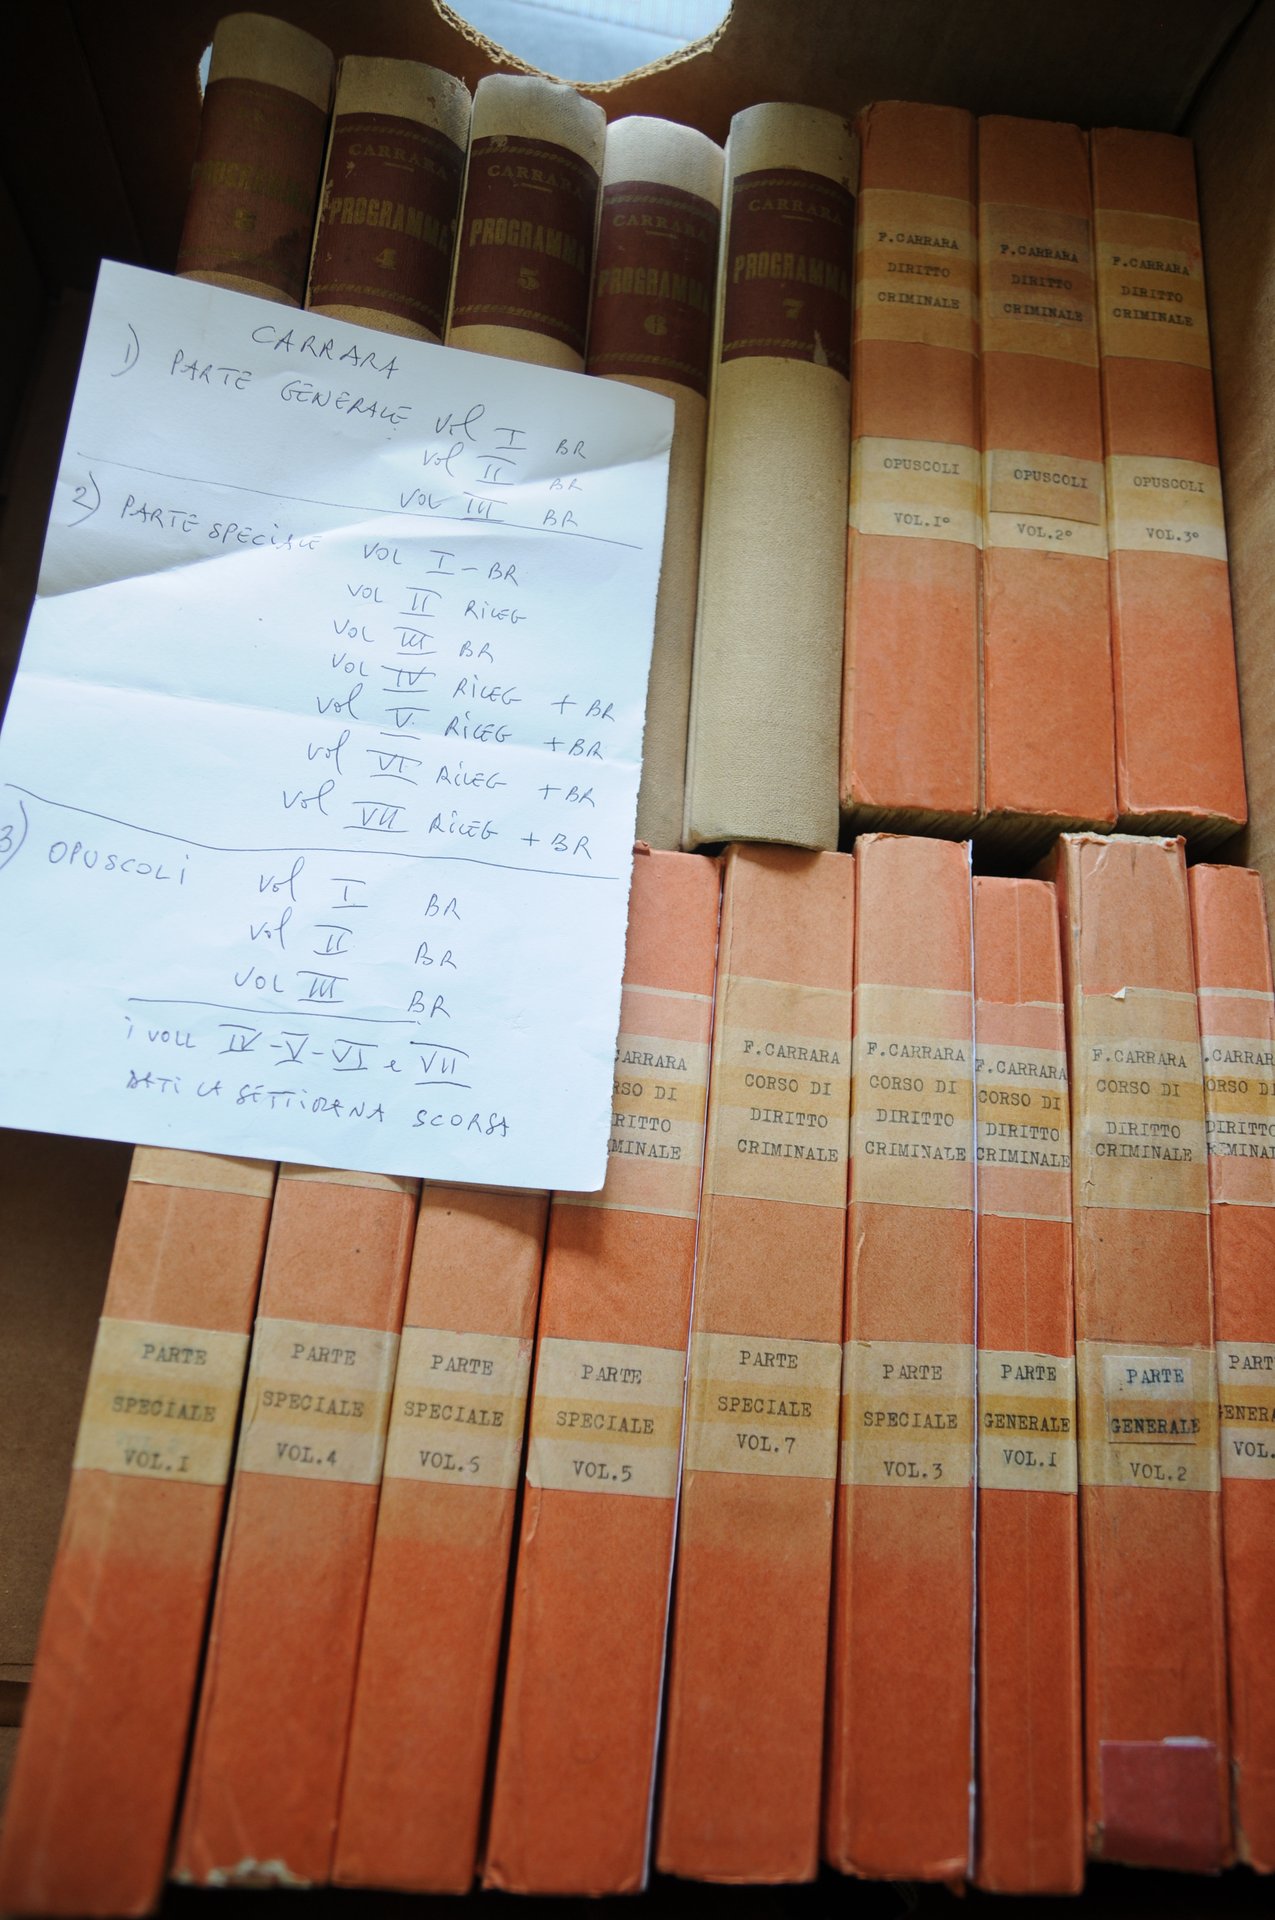 PROGRAMMA
CARRARA
PROGRAMMA
4
CARRARA
PROGRAMMA
5
CARRARA
PROGRAMMA
6
CARRARA
PROGRAMMA
7
F.CARRARA
DIRITTO
CRIMINALE
OPUSCOLI
VOL.1°
F.CARRARA
DIRITTO
CRIMINALE
OPUSCOLI
VOL.2°
F.CARRARA
DIRITTO
CRIMINALE
OPUSCOLI
VOL.3°
CARRARA
1) PARTE GENERALE vol I BR
vol II BR
VOL III BR
2) PARTE SPECIALE VOL I - BR
VOL II RILEG
VOL III BR
VOL IV RILEG + BR
vol V RILEG + BR
vol VI RILEG + BR
vol VII RILEG + BR
3) OPUSCOLI vol I BR
vol II BR
VOL III BR
i VOLL IV - V - VI e VII
DATI LA SETTIMANA SCORSA
PARTE
SPECIALE
VOL.1
PARTE
SPECIALE
VOL.4
PARTE
SPECIALE
VOL.6
CARRARA
RSO DI
RITTO
MINALE
PARTE
SPECIALE
VOL.5
F.CARRARA
CORSO DI
DIRITTO
CRIMINALE
PARTE
SPECIALE
VOL.7
F.CARRARA
CORSO DI
DIRITTO
CRIMINALE
PARTE
SPECIALE
VOL.3
F.CARRARA
CORSO DI
DIRITTO
CRIMINALE
PARTE
GENERALE
VOL.1
F.CARRARA
CORSO DI
DIRITTO
CRIMINALE
PARTE
GENERALE
VOL.2
.CARRAR
ORSO DI
DIRITTO
RIMINAL
PART
GENERA
VOL.